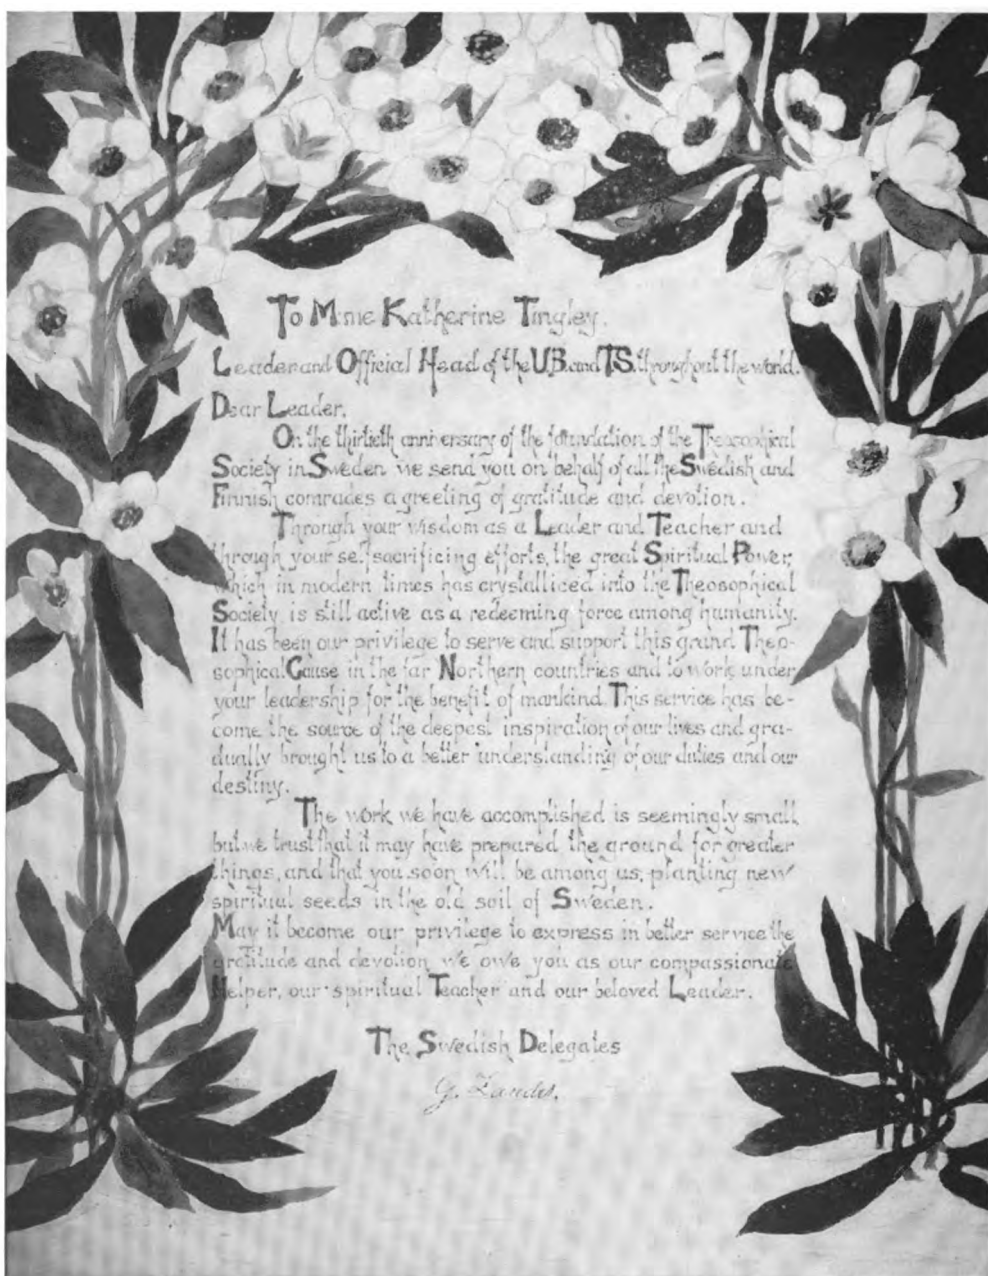 To Mme Katherine Tingley.
Leader and Official Head of the U.B. and T.S. throughout the world.
Dear Leader.
On the thirtieth anniversary of the foundation of the Theosophical
Society in Sweden we send you on behalf of all the Swedish and
Finnish comrades a greeting of gratitude and devotion.
Through your wisdom as a Leader and Teacher and
through your selfsacrificing efforts, the great Spiritual Power,
which in modern times has crystalliced into the Theosophical
Society, is still active as a redeeming force among humanity.
It has been our privilege to serve and support this grand Theo-
sophical Cause in the far Northern countries and to work under
your leadership for the benefit of mankind. This service has be-
come the source of the deepest inspiration of our lives and gra-
dually brought us to a better understanding of our duties and our
destiny.
The work we have accomplished is seemingly small,
but we trust that it may have prepared the ground for greater
things, and that you soon will be among us, planting new
spiritual seeds in the old soil of Sweden.
May it become our privilege to express in better service the
gratitude and devotion we owe you as our compassionate
Helper, our spiritual Teacher and our beloved Leader.
The Swedish Delegates
G.